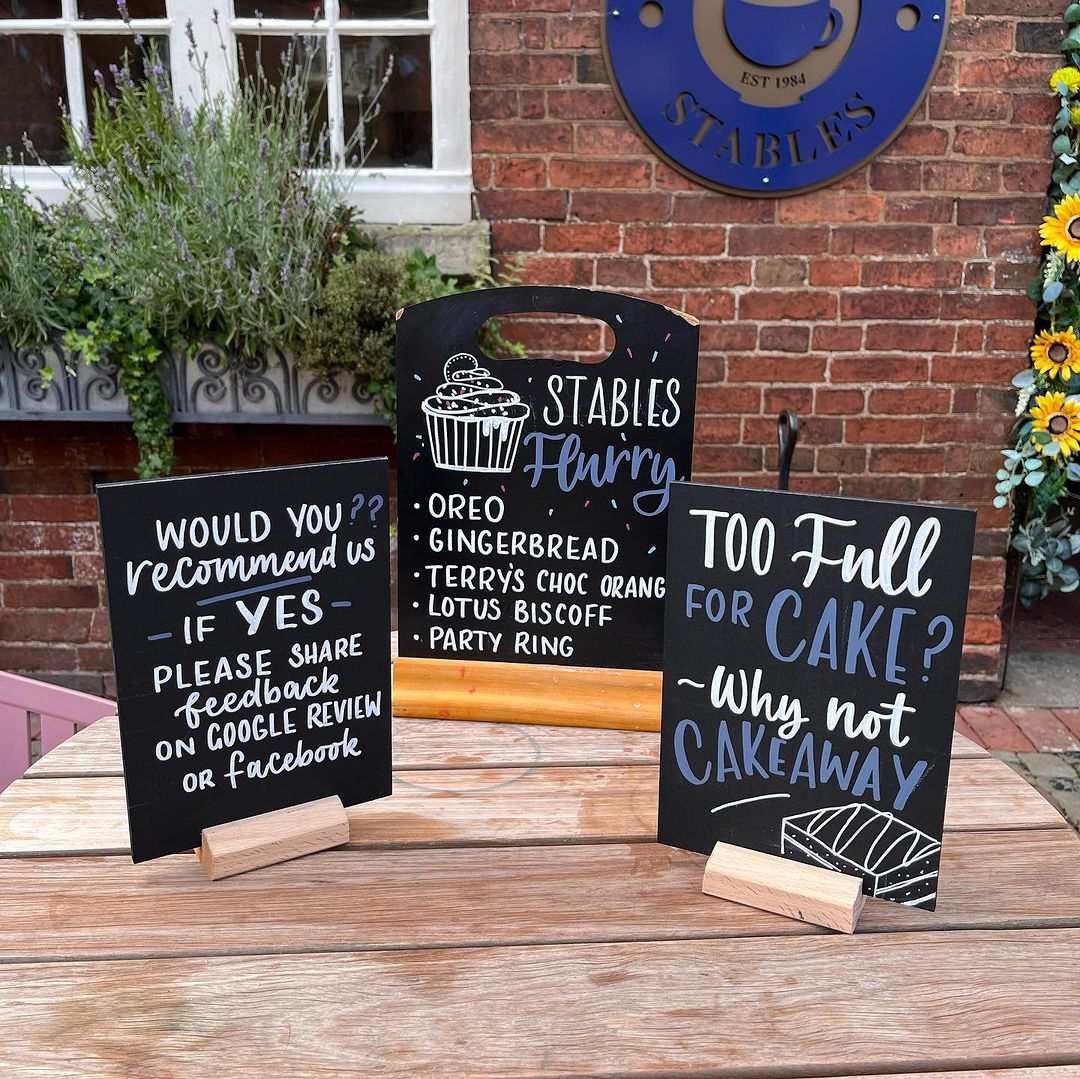 EST 1984
STABLES
STABLES
Flurry
• OREO
• GINGERBREAD
• TERRY'S CHOC ORANG
• LOTUS BISCOFF
• PARTY RING
WOULD YOU??
recommend us
- IF YES -
PLEASE SHARE
feedback
ON GOOGLE REVIEW
OR facebook
TOO Full
FOR CAKE?
~Why not
CAKEAWAY